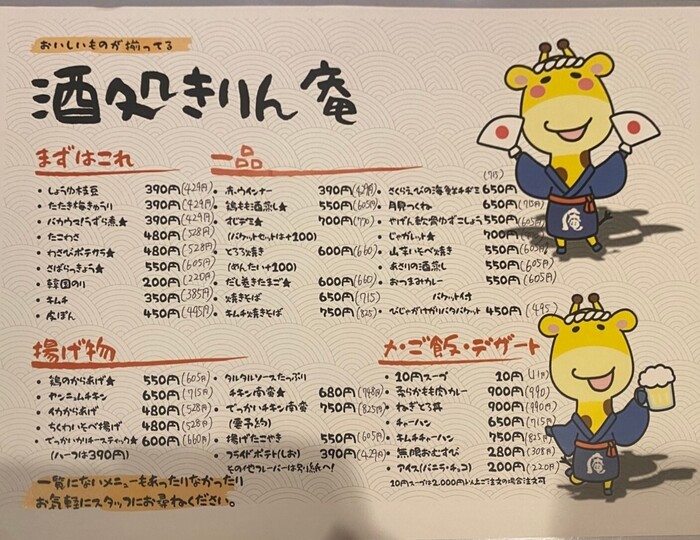 おいしいものが揃ってる
酒処きりん庵
まずはこれ
・しょうゆ枝豆 390円(429円)
・たたき梅きゅうり 390円(429円)
・バカウマ!うずら煮★ 390円(429円)
・たこわさ 480円(528円)
・わさびポテサラ★ 480円(528円)
・さばらっきょう★ 550円(605円)
・韓国のり 200円(220円)
・キムチ 350円(385円)
・皮ぽん 450円(445円)
一品
・赤ウインナー 390円(429円)
・鶏もも酒蒸し★ 550円(605円)
・すじデミ★ 700円(770)
(バケットセットは+200)
・とろろ焼き 600円(660)
(めんたい+200)
・だし巻きたまご★ 600円(660)
・焼きそば 650円(715)
・キムチ焼きそば 750円(825)
(715)
・さくらえびの海鮮チヂミ 650円
・月見つくね 650円
・やげん軟骨ゆずこしょう 550円(605円)
・じゃがレット★ 700円
・山芋いそべ焼き 550円(605円)
・あさりの酒蒸し 550円(605円)
・おつまみカレー 550円(605円)
バケット付
450円(495)
揚げ物
・鶏のからあげ★ 550円(605円)
・ヤンニョムチキン 650円(715)
・イカからあげ 480円(528円)
・ちくわいそべ揚げ 480円(528円)
・でっかいかりチースティック★ 600円(660円)
(ハーフは390円)
・タルタルソースたっぷり
チキン南蛮★ 680円(748円)
・でっかいチキン南蛮 750円(825円)
(要予約)
・揚げたこやき 550円(605円)
・フライドポテト(しお) 390円(429円)
その他フレーバーは別紙へ!
・ご飯・デザート
・10円スープ 10円(11円)
・柔らかもも肉カレー 900円(990)
・ねぎとろ丼 900円(990円)
・チャーハン 650円(715)
・キムチチャーハン 750円(825)
・無限おむすび 280円(308円)
・アイス(バニラ・チョコ) 200円(220円)
10円スープは2,000円以上ご注文の場合注文可
一覧にないメニューもあったりなかったり
お気軽にスタッフにお尋ねください。
庵
庵